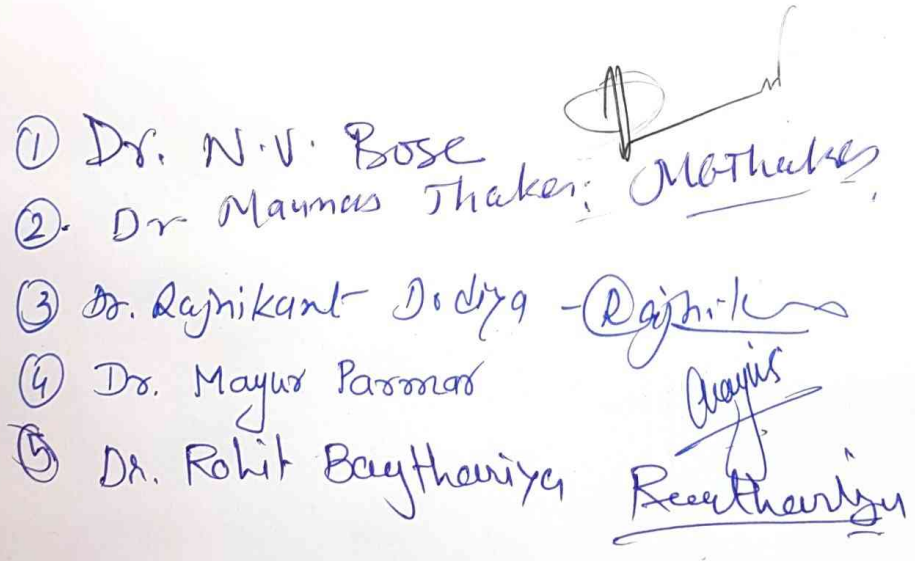 ① Dr. N.V. Bose
②. Dr Maunas Thaker: M.G.Thaker
③ Dr. Rajnikant Dodiya - Rajnik
④ Dr. Mayur Parmar
⑤ Dr. Rohit Baythariya